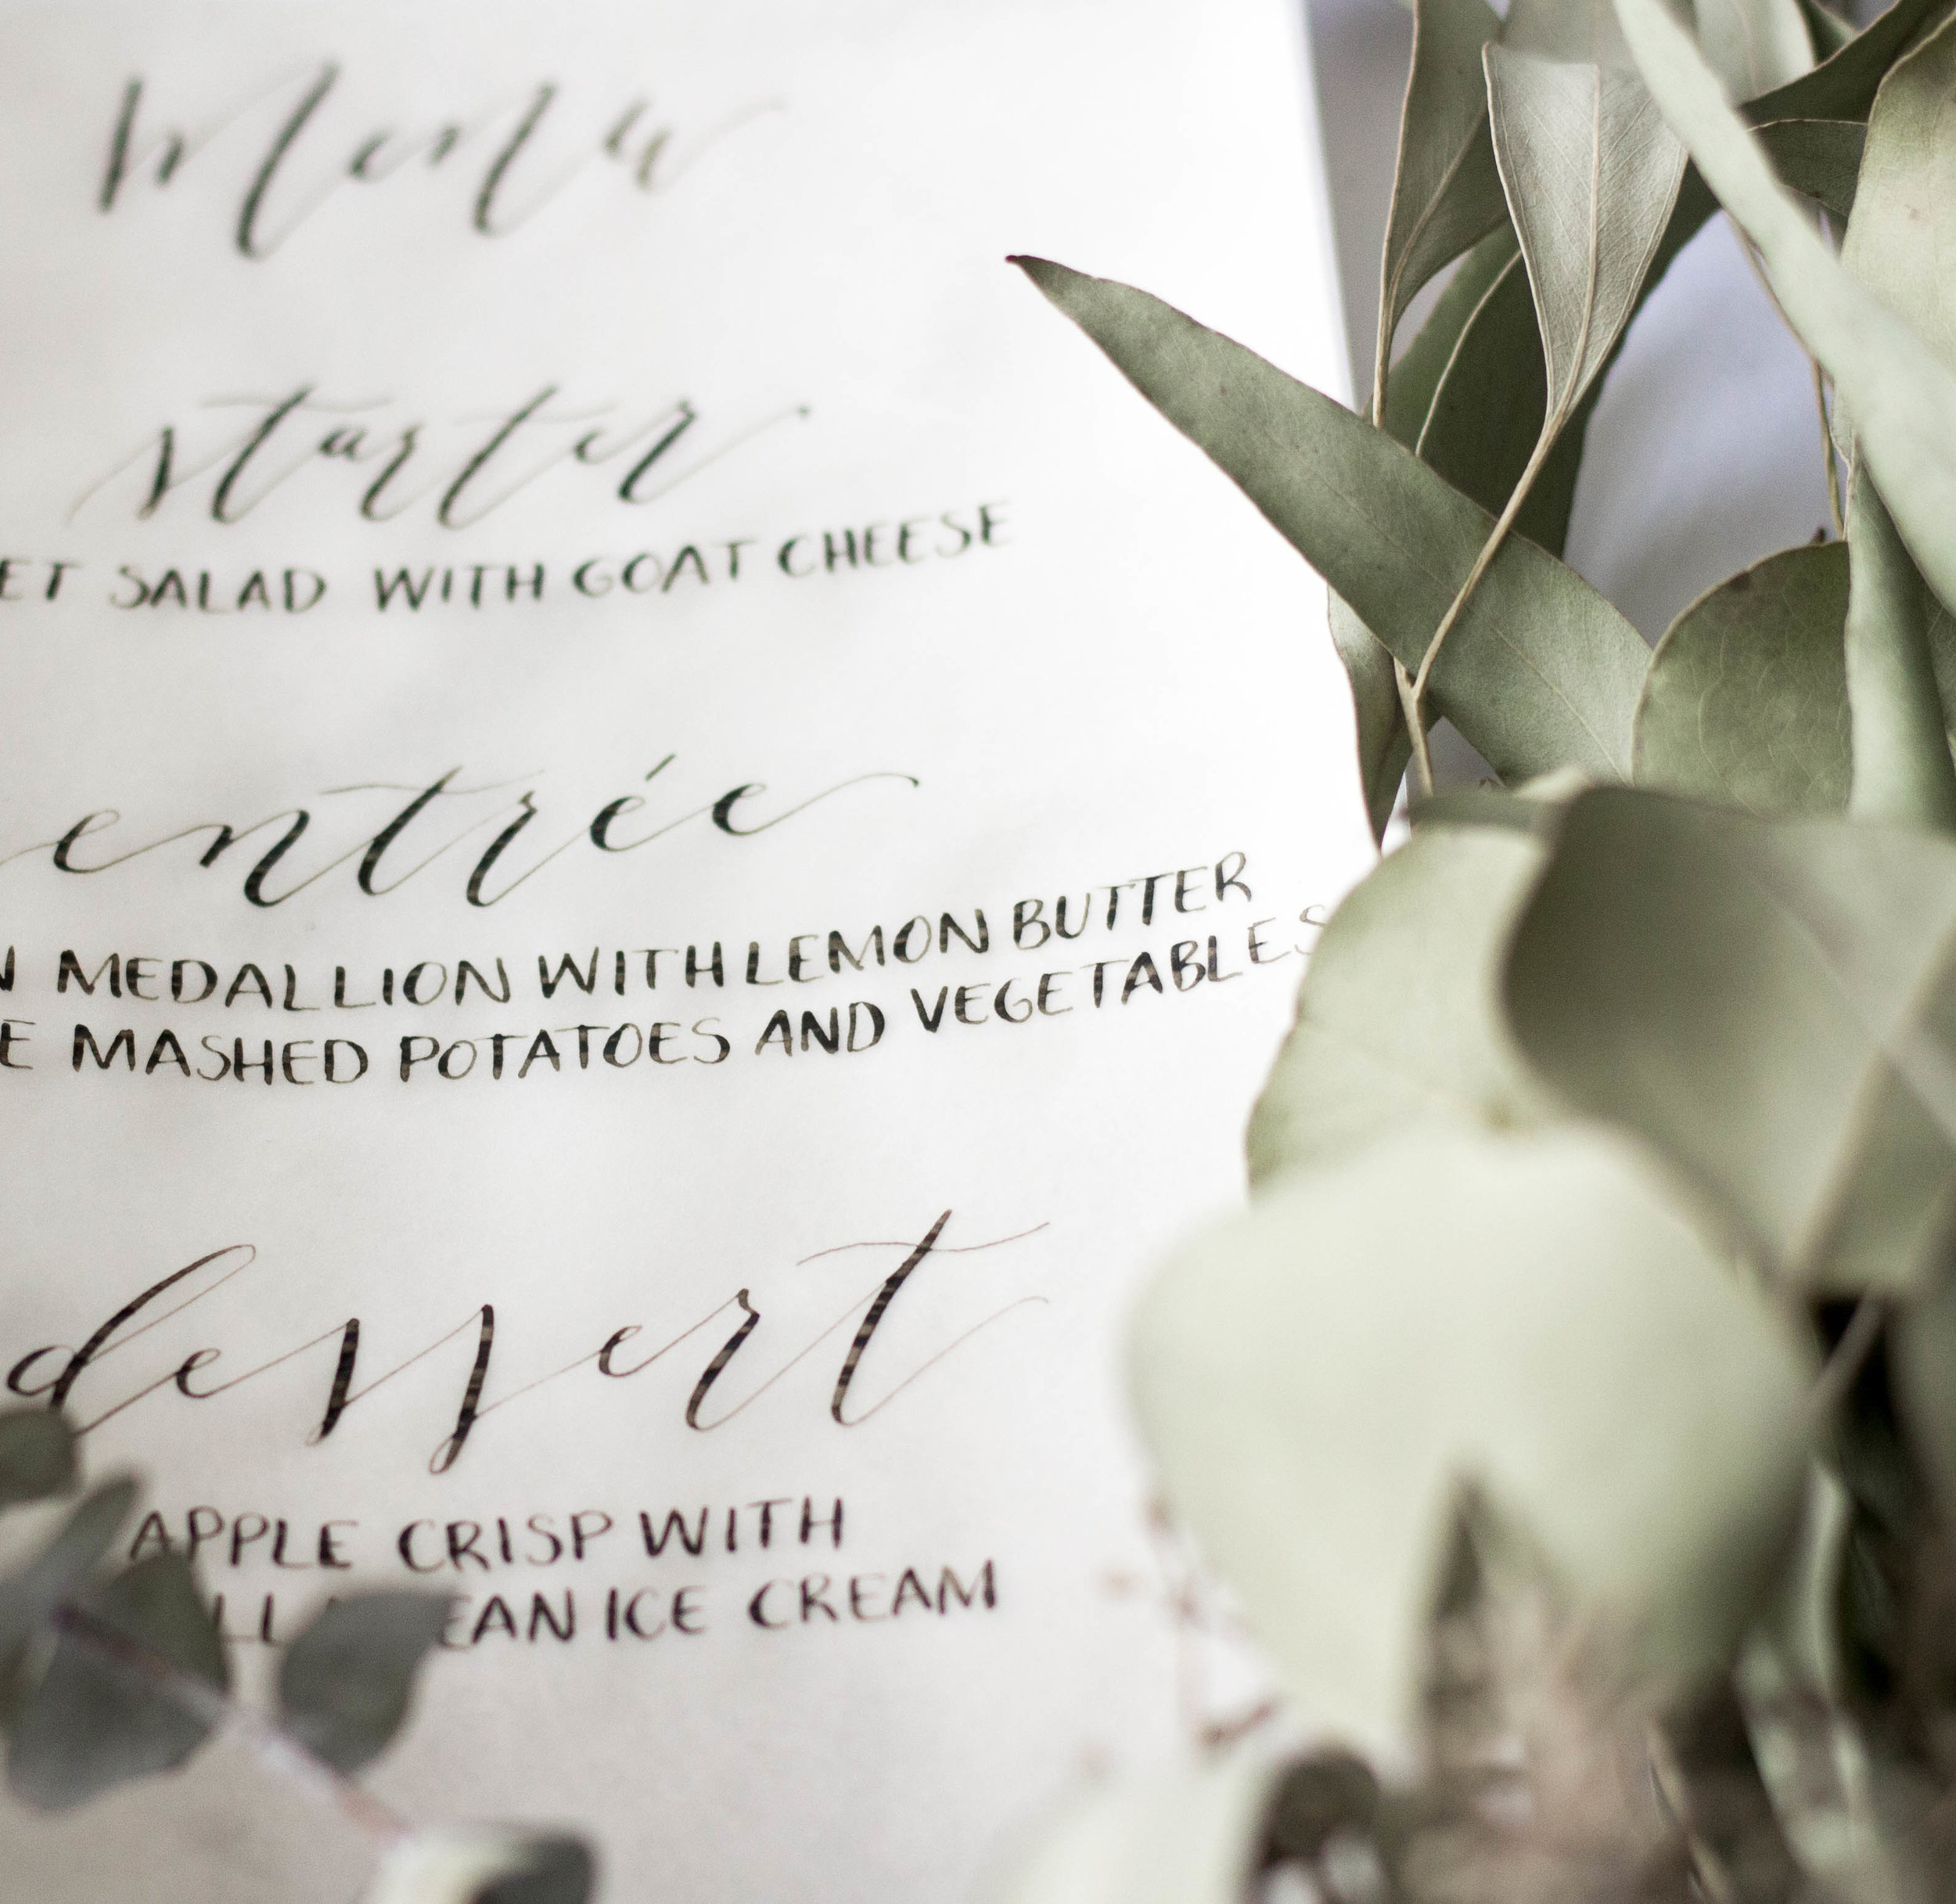 menu
starter
SALAD WITH GOAT CHEESE
entrée
MEDALLION WITH LEMON BUTTER
MASHED POTATOES AND VEGETABLES
dessert
APPLE CRISP WITH
ICE CREAM